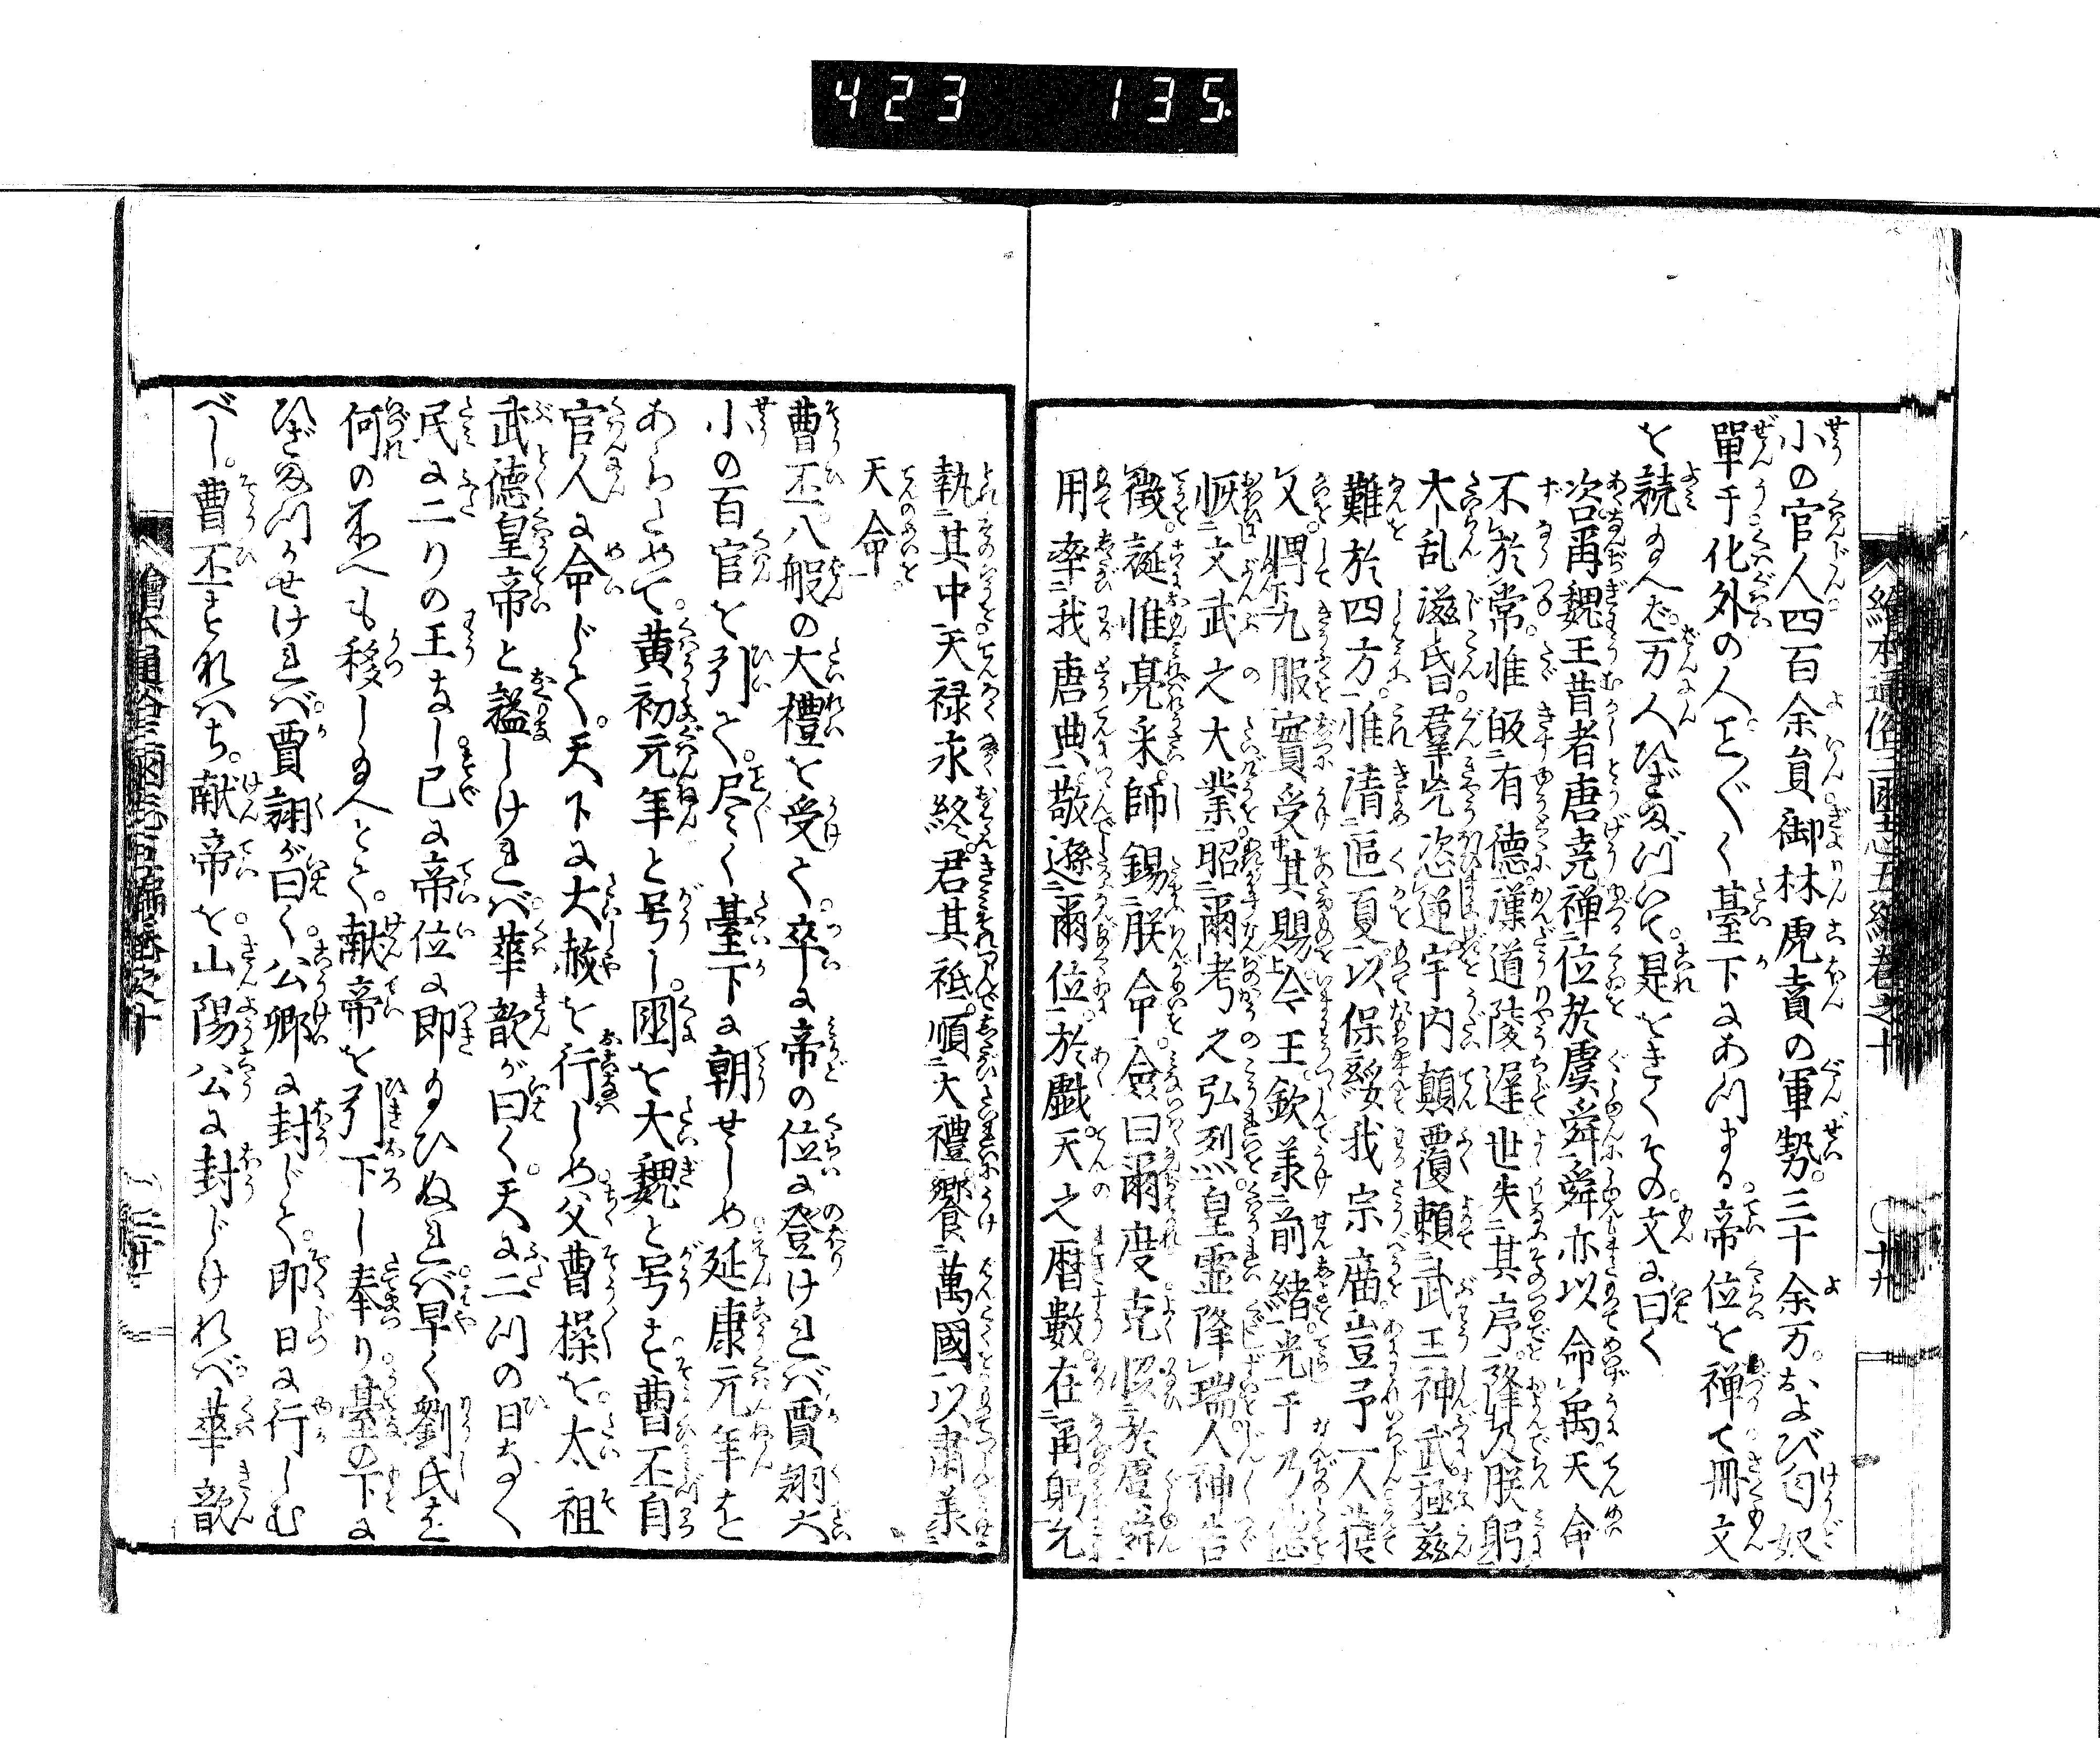 423 135
繪本通俗三國志五編巻之十 ○廿九
小の官人四百余員御林虎賁の軍勢三十余万および匈奴
單于化外の人こと〴〵く臺下にあつまる帝位を禅て冊文
を読給へば万人ひざまづいて是をきくその文に曰く
咨爾魏王昔者唐堯禅位於虞舜舜亦以命禹天命
不於常惟皈有徳漢道陵遅世失其序降及朕躬
大乱滋昏羣兇恣逆宇内顛覆頼武王神武拯茲
難於四方惟清區夏以保綏我宗廟豈予一人獲
乂俾九服實受其賜今王欽兼前緒光于乃徳
恢文武之大業昭爾考之弘烈皇霊降瑞人神告
徴誕惟亮采師錫朕命僉曰爾度克協於虞舜
用率我唐典敬遜爾位於戯天之暦數在爾躬允
執其中天禄永終君其祇順大禮饗萬國以肅兼
天命
曹丕八般の大禮を受て卒に帝の位に登けれバ賈詡大
小の百官を引て尽く臺下に朝せしめ延康元年を
あらためて黄初元年と号し國を大魏と号す曹丕自
官人に命じて天下に大赦を行しめ父曹操を太祖
武徳皇帝と謚しけれバ華歆が曰く天に二つの日なく
民に二りの王なし已に帝位に即給ひぬれバ早く劉氏を
何の所へも移し給へとて献帝を引下し奉り臺の下に
ひざまづかせけれバ賈詡が曰く公卿に封じて即日に行しむ
べし曹丕すなハち献帝を山陽公に封じけれバ華歆